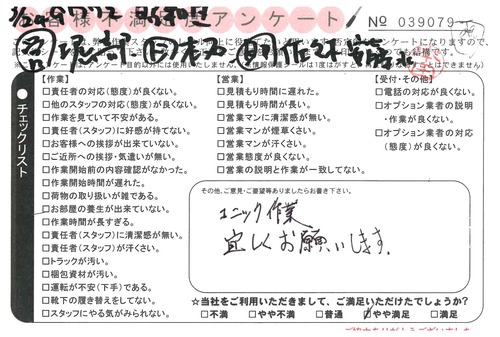 お客様不満足度アンケート
№ 039079
チェックリスト
【作業】
□責任者の対応(態度)が良くない。
□他のスタッフの対応(態度)が良くない。
□作業を見ていて不安がある。
□責任者(スタッフ)に好感が持てない。
□お客様への挨拶が出来ていない。
□ご近所への挨拶・気遣いが無い。
□作業開始前の内容確認がなかった。
□作業開始時間が遅れた。
□荷物の取り扱いが雑である。
□お部屋の養生が出来ていない。
□作業時間が長すぎる。
□責任者(スタッフ)に清潔感が無い。
□責任者(スタッフ)が汗くさい。
□トラックが汚い。
□梱包資材が汚い。
□運転が不安(下手)である。
□靴下の履き替えをしてない。
□スタッフにやる気がみられない。
【営業】
□見積もり時間に遅れた。
□見積もり時間が長い。
□営業マンに清潔感が無い。
□営業マンが煙草くさい。
□営業マンが汗くさい。
□営業態度が良くない。
□営業の説明と作業が一致してない。
【受付・その他】
□電話の対応が良くない。
□オプション業者の説明
・作業が良くない。
□オプション業者の対応
(態度)が良くない。
その他、ご意見・ご要望等ありましたらお書き下さい。
ユニック作業
宜しくお願いします。
☆当社をご利用いただきまして、ご満足いただけたでしょうか?
□不満 □やや不満 □普通 □やや満足 □満足